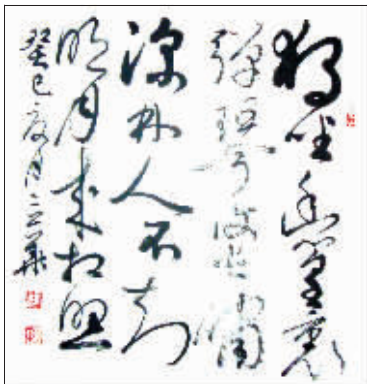 独坐幽篁里
弹琴复长啸
深林人不知
明月来相照
癸巳夏月